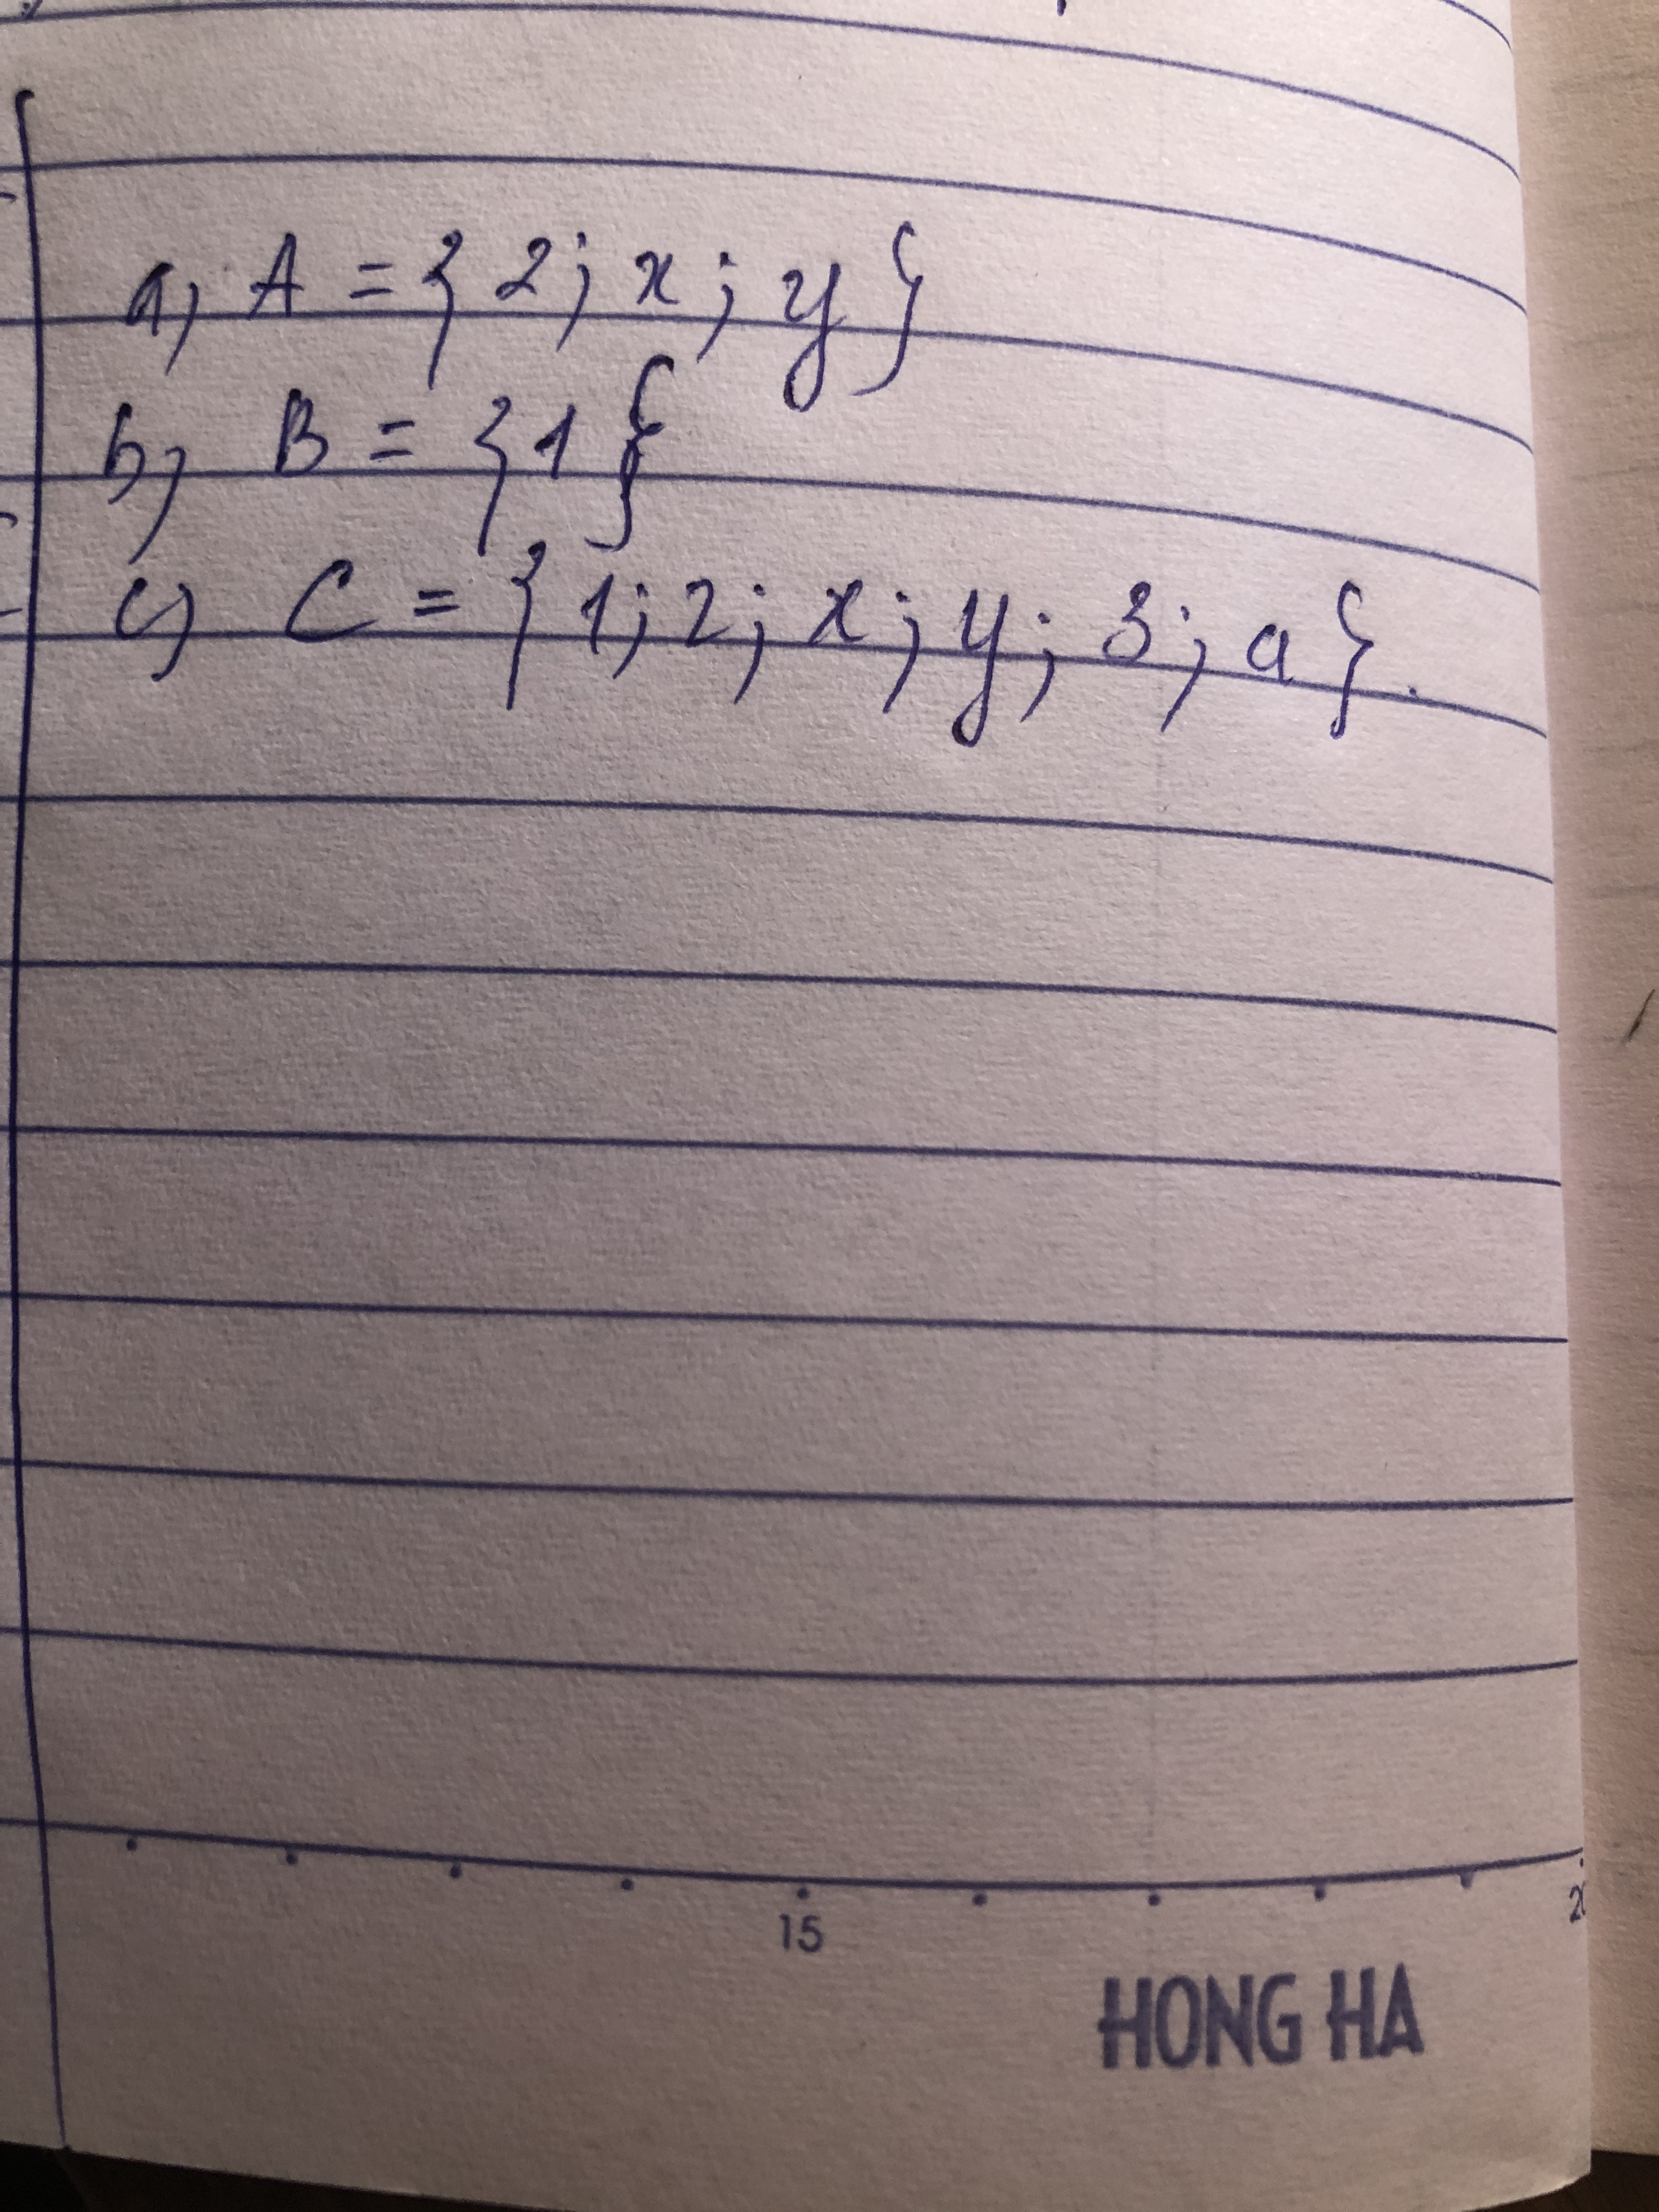 a, A = { 2; x; y }
b, B = { 1 }
c, C = { 1; 2; x; y; 3; a }.
15
HONG HA